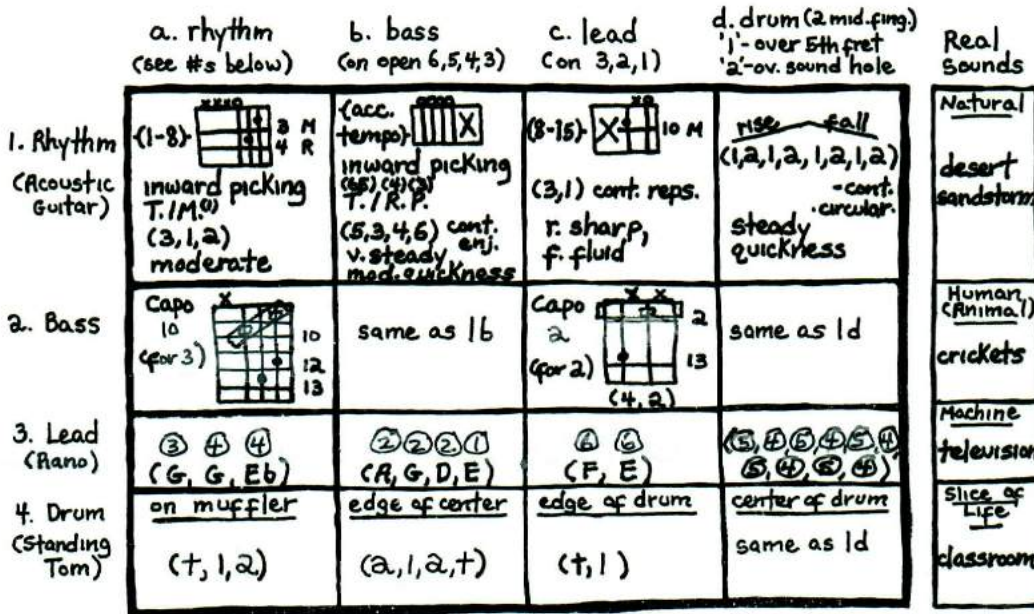 a. rhythm
(see #s below)
b. bass
(on open 6,5,4,3)
c. lead
(on 3,2,1)
d. drum (2 mid.fing.)
'1'-over 5th fret
'2'-ov. sound hole
Real
Sounds
1. Rhythm
(Acoustic
Guitar)
xxxo
{1-8}
3 M
4 R
inward picking
T./M.(1)
(3,1,2)
moderate
{acc.
tempo}
oooo
X
inward picking
(65) (4)(3)
T. / R. P.
(5,3,4,6) cont.
enj.
v. steady
mod. quickness
{8-15}
xo
X
10 M
(3,1) cont. reps.
r. sharp,
f. fluid
rise fall
(1,2,1,2, 1,2,1,2)
-cont.
.circular.
steady
quickness
Natural
desert
sandstorm
2. Bass
Capo
10
(for 3)
X
10
12
13
same as 1b
Capo
2
(for 2)
X X
2
13
(4,2)
same as 1d
Human
(Animal)
crickets
3. Lead
(Piano)
3 4 4
(G, G, Eb)
2 2 2 1
(A, G, D, E)
6 6
(F, E)
(5,4,5,4,5,4,
5,4,5,4)
Machine
television
4. Drum
(Standing
Tom)
on muffler
(t,1,2)
edge of center
(2,1,2,t)
edge of drum
(t,1)
center of drum
same as 1d
Slice of
Life
classroom